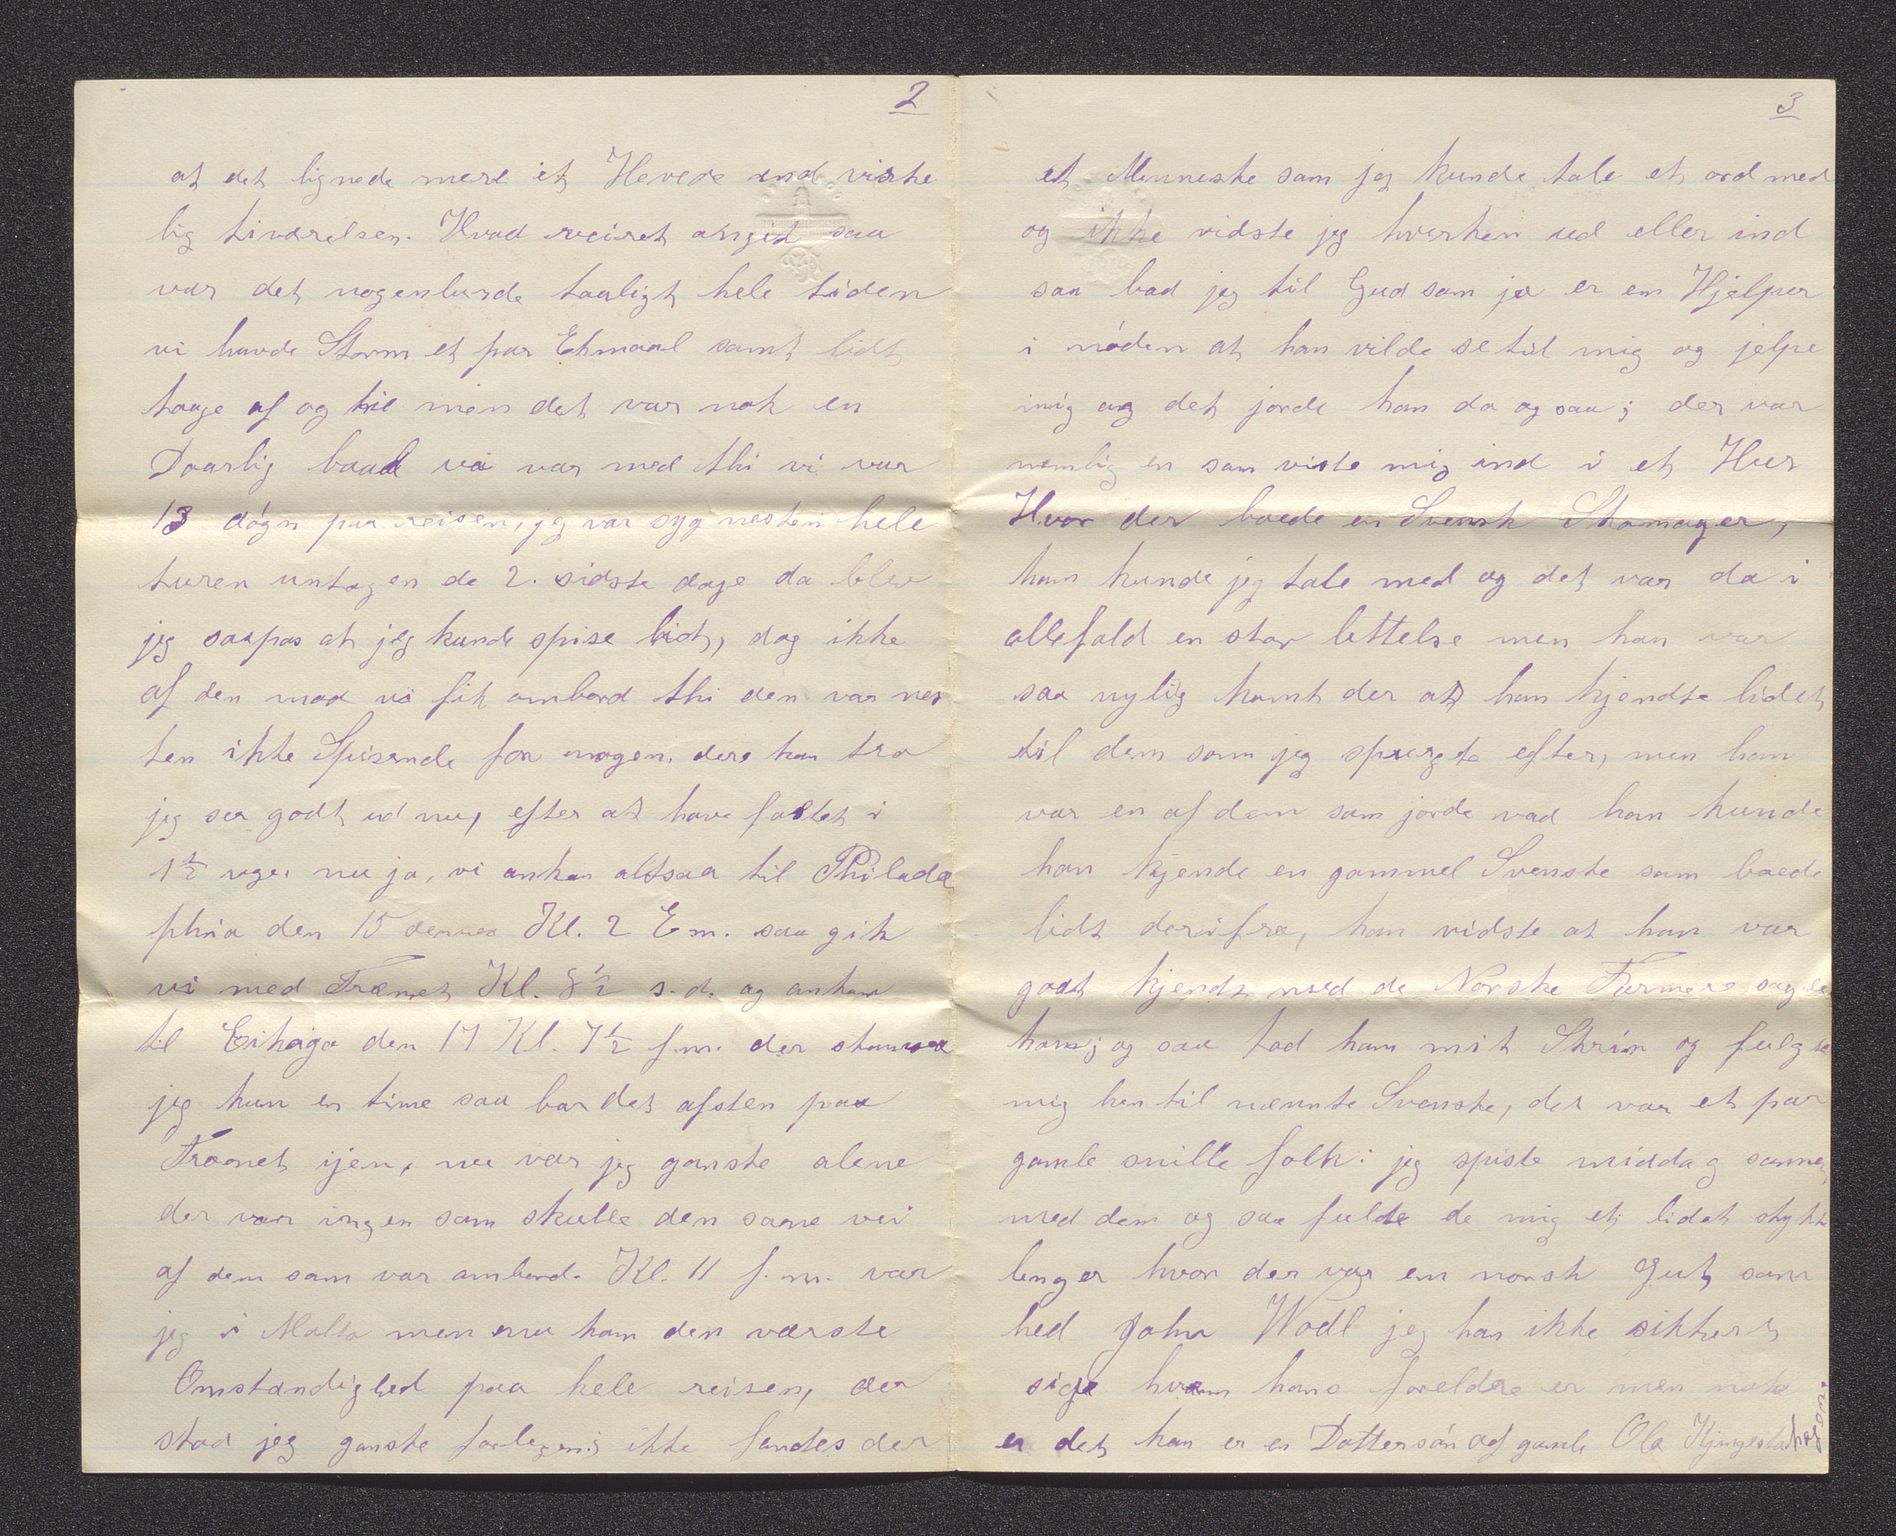 2
at det lignede mere et Hevede end virke
lig tiværelsen. Hvad veiret angid saa
var det nogenlunde taaligt hele tiden
vi havde Storm et par Etmaal samt lidt
taage af og til men det var nok en
Daarlig baad vi var med thi vi var
13 døgn paa reisen, jeg var syg nesten hele
turen untagen de 2. sidste dage da blev
jeg saapas at jeg kunde spise lidt, dog ikke
af den mad vi fik ombord thi den var nes
ten ikke Spisende for nogen, dere kan tro
jeg ser godt ud nu, efter at have fastet i
1½ uge, nu ja, vi ankom altsaa til Philada
phia den 15 dennes Kl. 2 Em. saa gik
vi med Trænet Kl. 8½ s.d. og ankom
til Cihago den 17 Kl. 7½ f.m. der stansed
jeg kun en time saa bar det afsten paa
Trænet ijen, nu var jeg ganske alene
der var ingen som skulle den same vei
af dem som var ombord. Kl. 11 f.m. var
jeg i Malta men nu kom den værste
Omstændighed paa hele reisen, der
stod jeg ganske forlegen; ikke fandtes der
3
et Menneske som jeg kunde tale et ord med
og ikke vidste jeg hverken ud eller ind
saa bad jeg til Gud som jo er en Hjelper
i nøden at han vilde se til mig og jelpe
mig og det jorde han da ogsaa; der var
nemlig en som viste mig ind i et Hus
Hvor der boede en Svensk Skomager,
ham kunde jeg tale med og det var da i
allefald en stor lettelse men han var
saa nylig komt der at han kjendte lidet
til dem som jeg spurgte efter, men han
var en af dem som jorde vad han kunde
han kjende en gammel Svenske som boede
lidt derifra, han vidste at han var
godt kjendt med de Norske Farmere sagde
han; og saa tod han mit Skrin og fulgte
mig hen til nævnte Svenske, det var et par
gamle snille folk: jeg spiste middag sammen
med dem og saa fulde de mig et lidet stykke
lenger hvor der var en norsk Gut som
hed John Wodl jeg kan ikke sikkert
sige hvem hans foreldre er men nok
er det han er en Dattersøn af gamle Ola Kjingestad